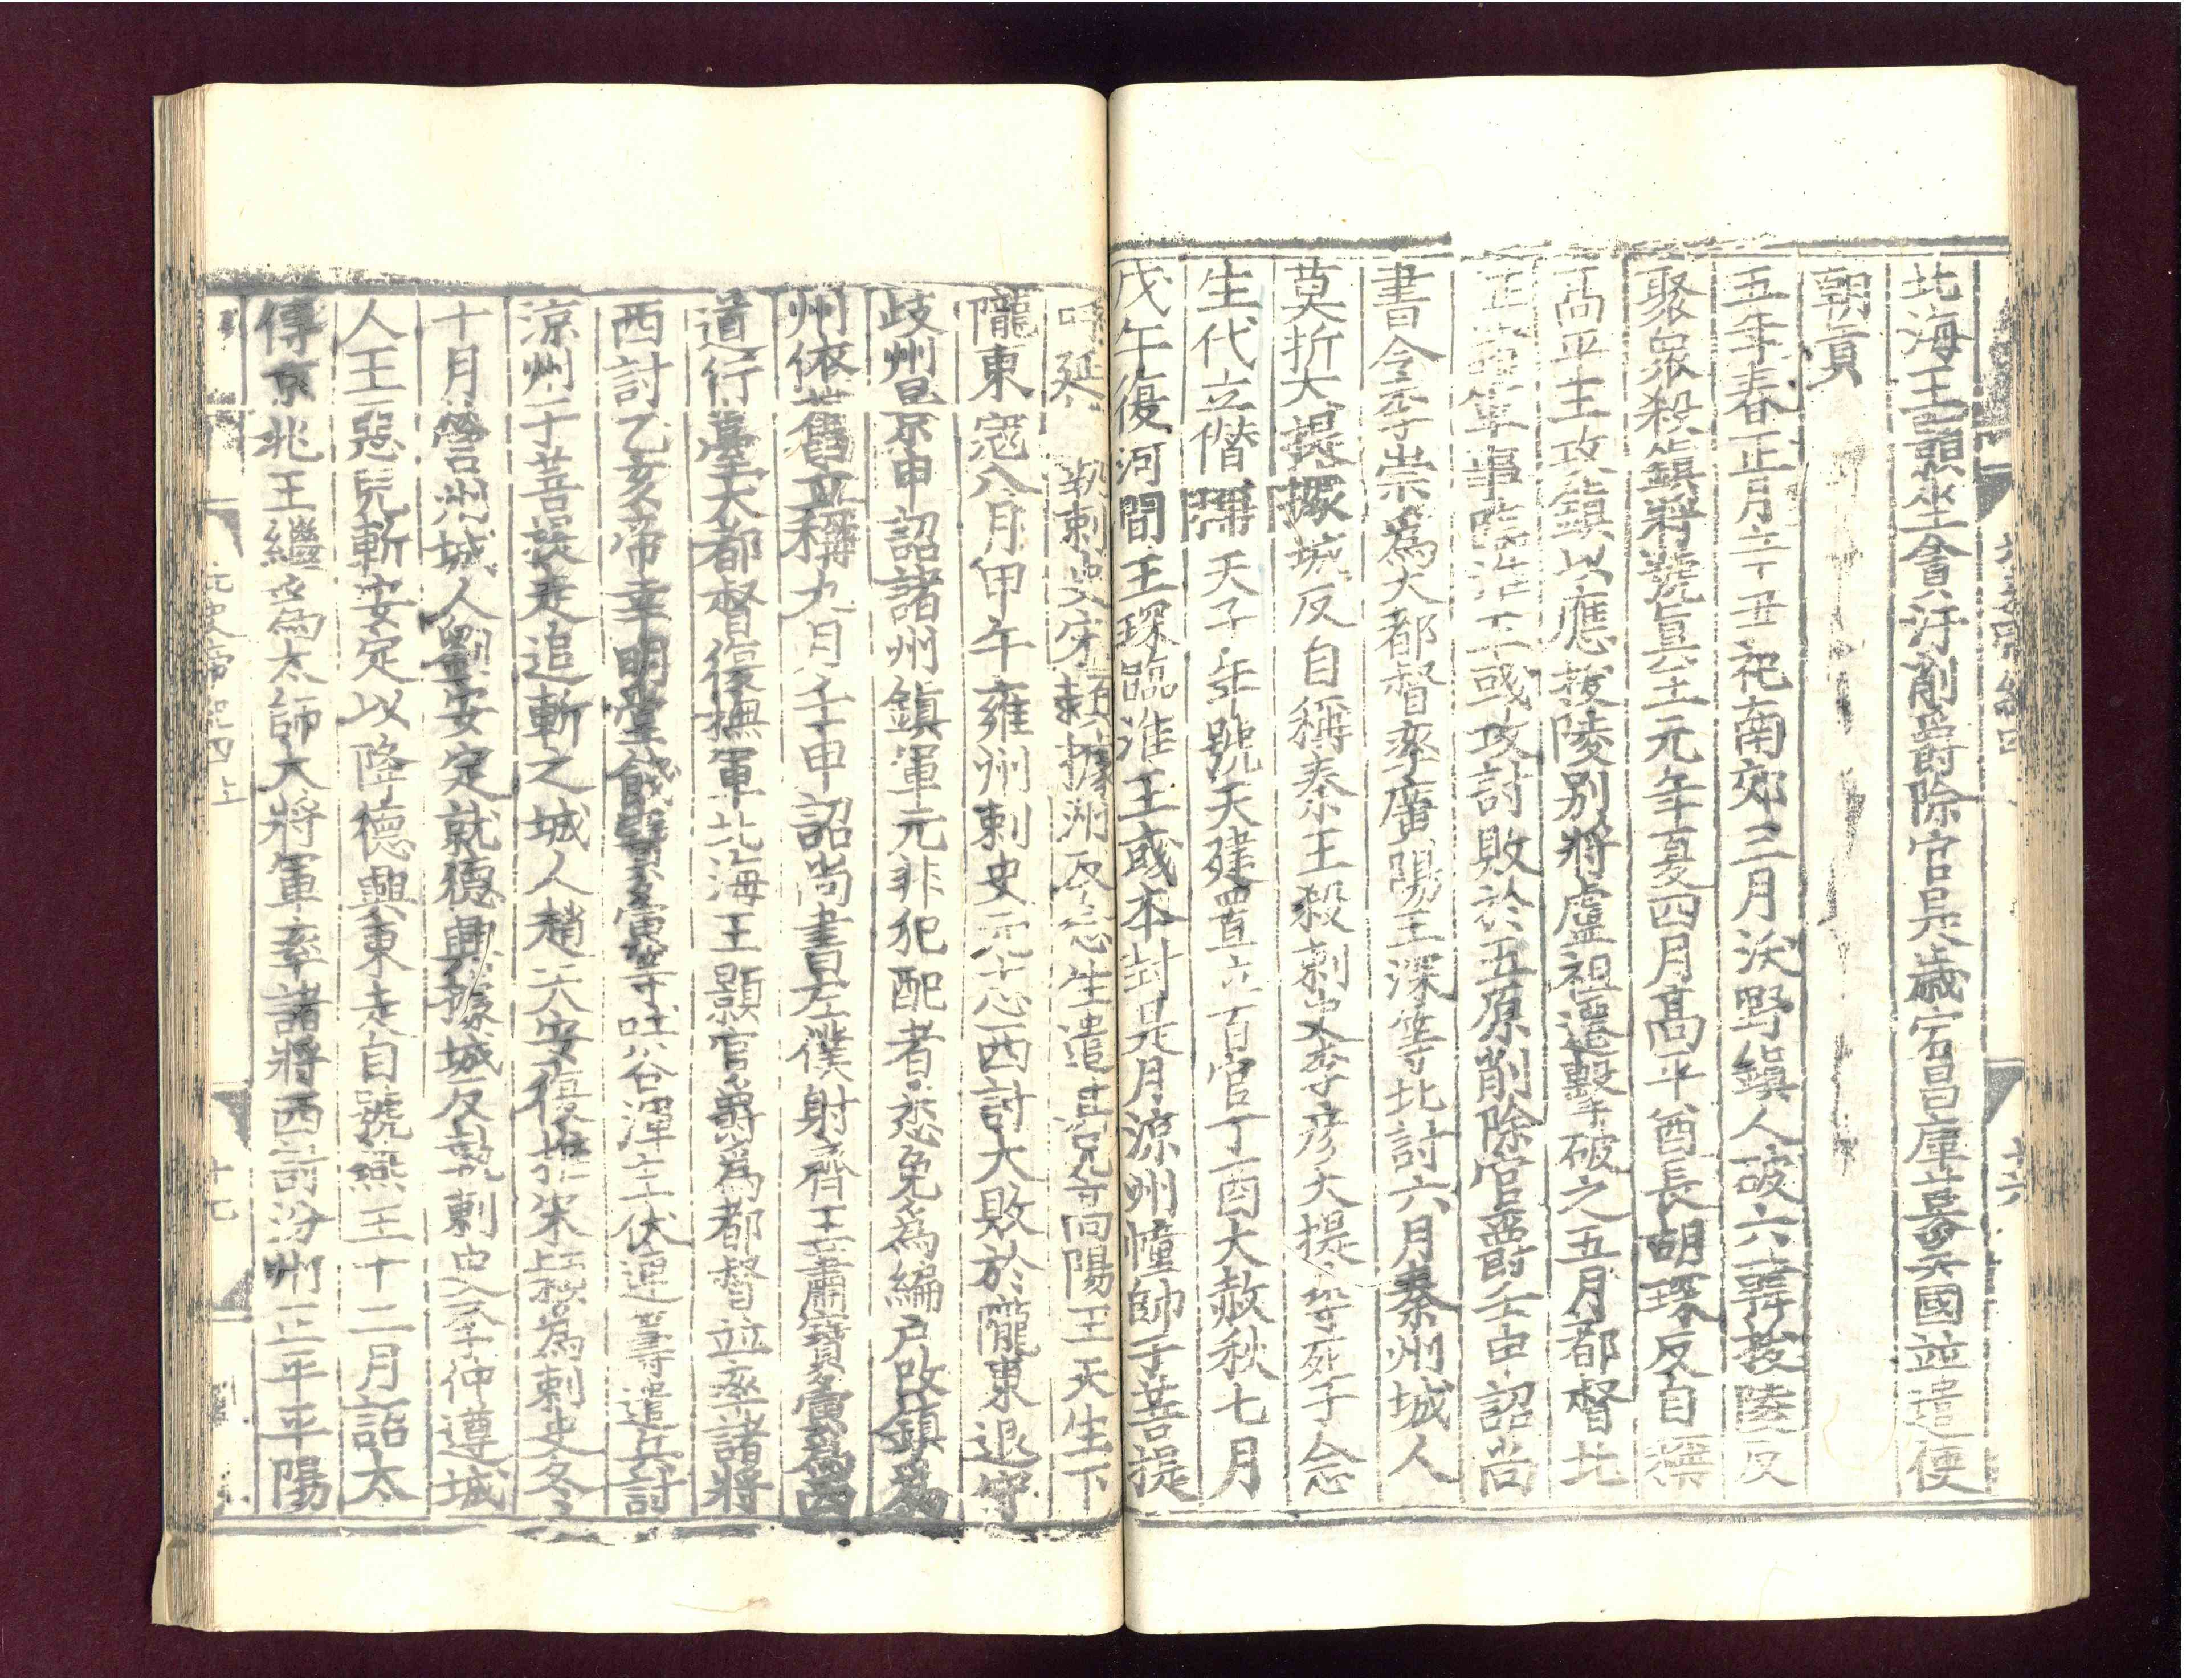 北海王顥坐貪汙削爵除官是歲宕昌庫莫奚國並遣使
朝貢
五年春正月辛丑祀南郊三月沃野鎮人破六韓拔陵反
聚眾殺鎮將號真王元年夏四月高平酋長胡琛反自稱
高平王攻鎮以應拔陵別將盧祖遷擊破之五月都督北
征諸軍事臨淮王彧攻討敗於五原削除官爵壬申詔尚
書令李崇為大都督率廣陽王深等北討六月秦州城人
莫折大提據城反自稱秦王殺刺史李彥大提尋死子念
生代立僭稱天子年號天建置立百官丁酉大赦秋七月
戊午復河間王琛臨淮王彧本封是月涼州幢帥于菩提
呼延 執刺史宋穎據州反念生遣其兄高陽王天生下
隴東寇八月甲午雍州刺史元志西討大敗於隴東退守
歧州 申詔諸州鎮軍元非犯配者悉免為編戶改鎮為
州依舊立稱九月壬申詔尚書左僕射齊王蕭寶夤為西
道行臺大都督復撫軍北海王顥官爵為都督並率諸將
西討乙亥帝幸明堂餞寶夤等吐谷渾主伏連籌遣兵討
涼州于菩提走追斬之城人趙天安復推宋穎為刺史冬
十月營州城人劉安定就德興據城反執刺史李仲遵城
人王惡兒斬安定以降德興東走自號燕王十二月詔太
傅京兆王繼為太師大將軍率諸將西討汾州正平平陽
北史帝紀四上
十七
十六